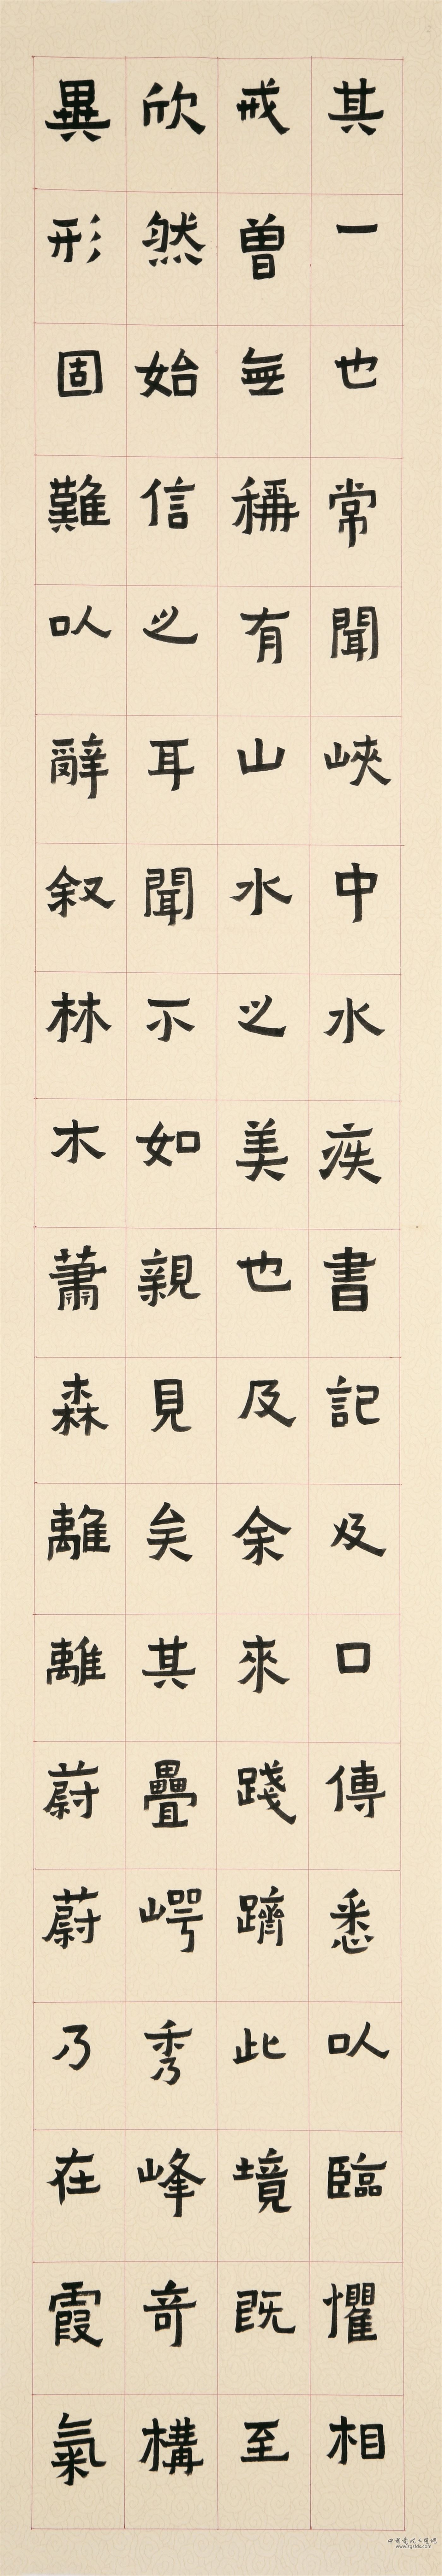 其一也常聞峽中水疾書記及口傳悉以臨懼相
戒曾無稱有山水之美也及余來踐躋此境既至
欣然始信之耳聞不如親見矣其疊崿秀峰奇構
異形固難以辭叙林木蕭森離離蔚蔚乃在霞氣